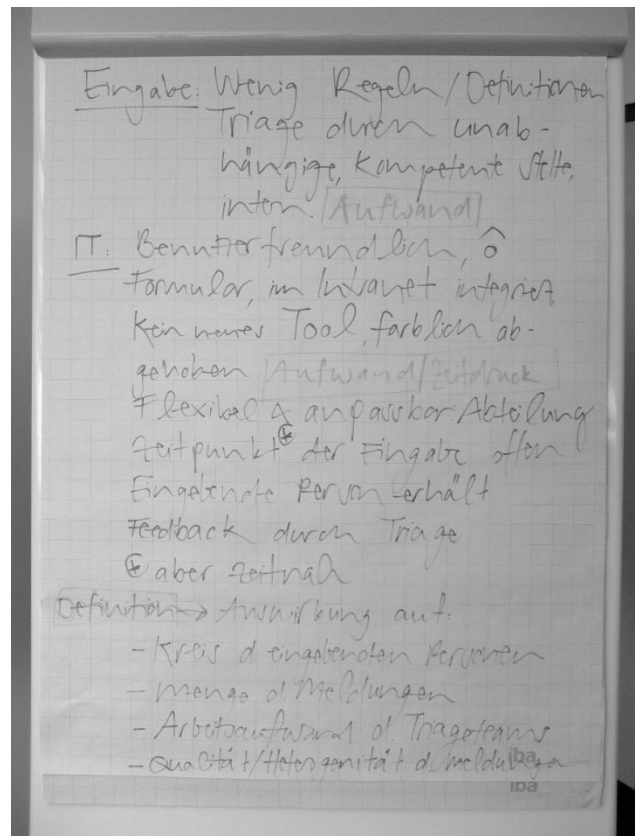 Eingabe: Wenig Regeln/Definitionen
Triage durch unab-
hängige, kompetente Stelle,
intern. [Aufwand]
IT: Benutzerfreundlich, ô
Formular, im Intranet integriert,
Kein neues Tool, farblich ab-
gehoben [Aufwand/Zeitdruck
Flexibel & anpassbar: Abteilung
Zeitpunkt⊛ der Eingabe offen
Eingebende Person erhält
Feedback durch Triage
⊛ aber zeitnah
Definition → Auswirkung auf:
- Kreis d. eingebenden Personen
- Menge d. Meldungen
- Arbeitsaufwand d. Triageteams
- Qualität/Heterogenität d. Meldungen
iba
iba